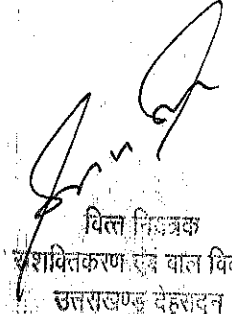 वित्त नियंत्रक
सशक्तिकरण एवं बाल वि
उत्तराखण्ड देहरादून